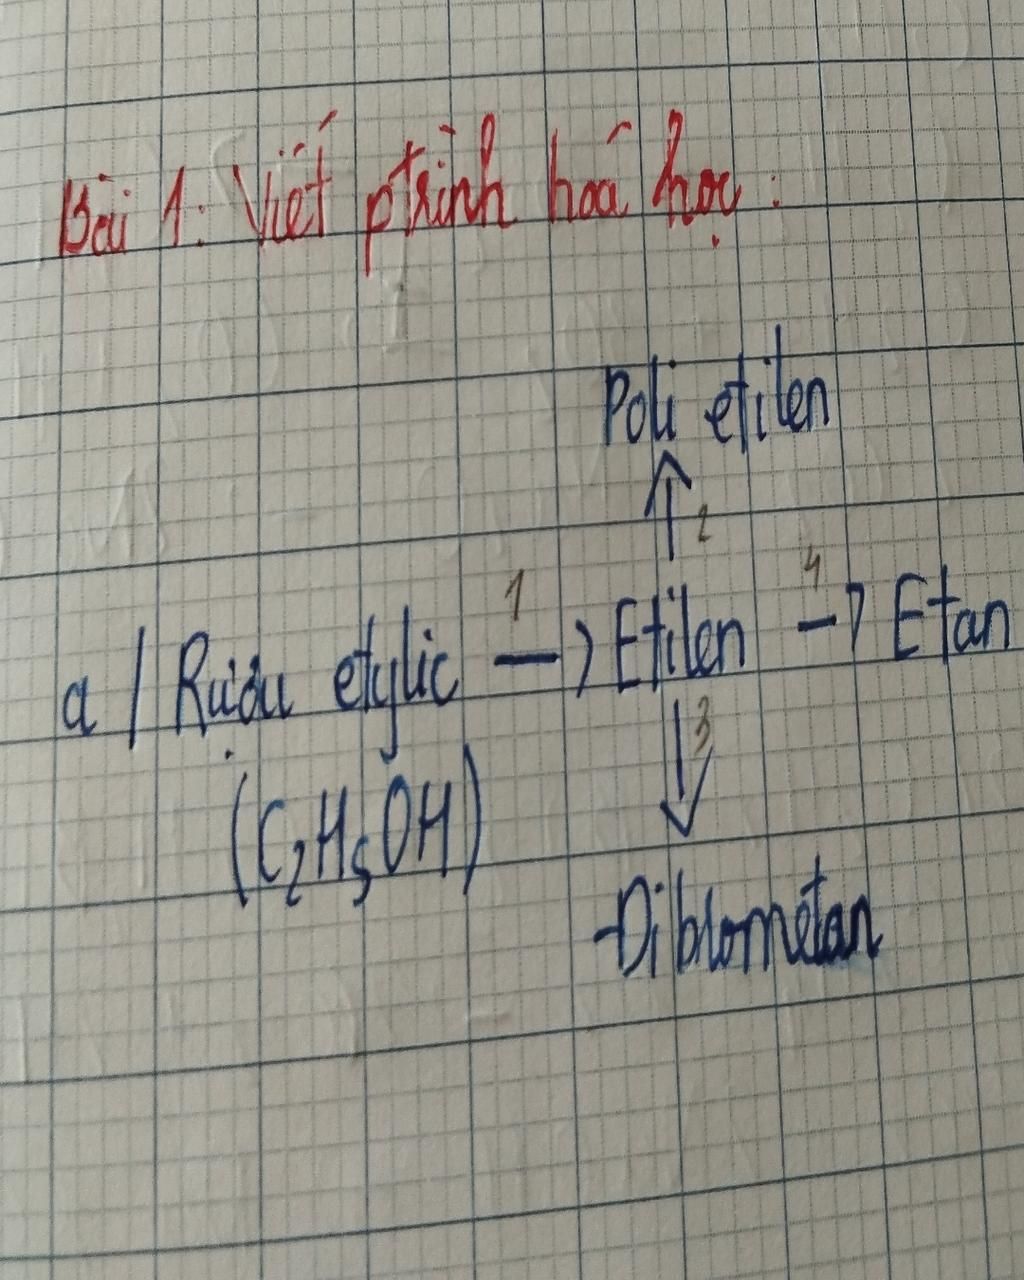 Bài 1: Viết ptrình hoá học:
Poli etilen
2
1
4
a / Rượu etylic —> Etilen —> Etan
3
(C₂H₅OH)
Đibrometan